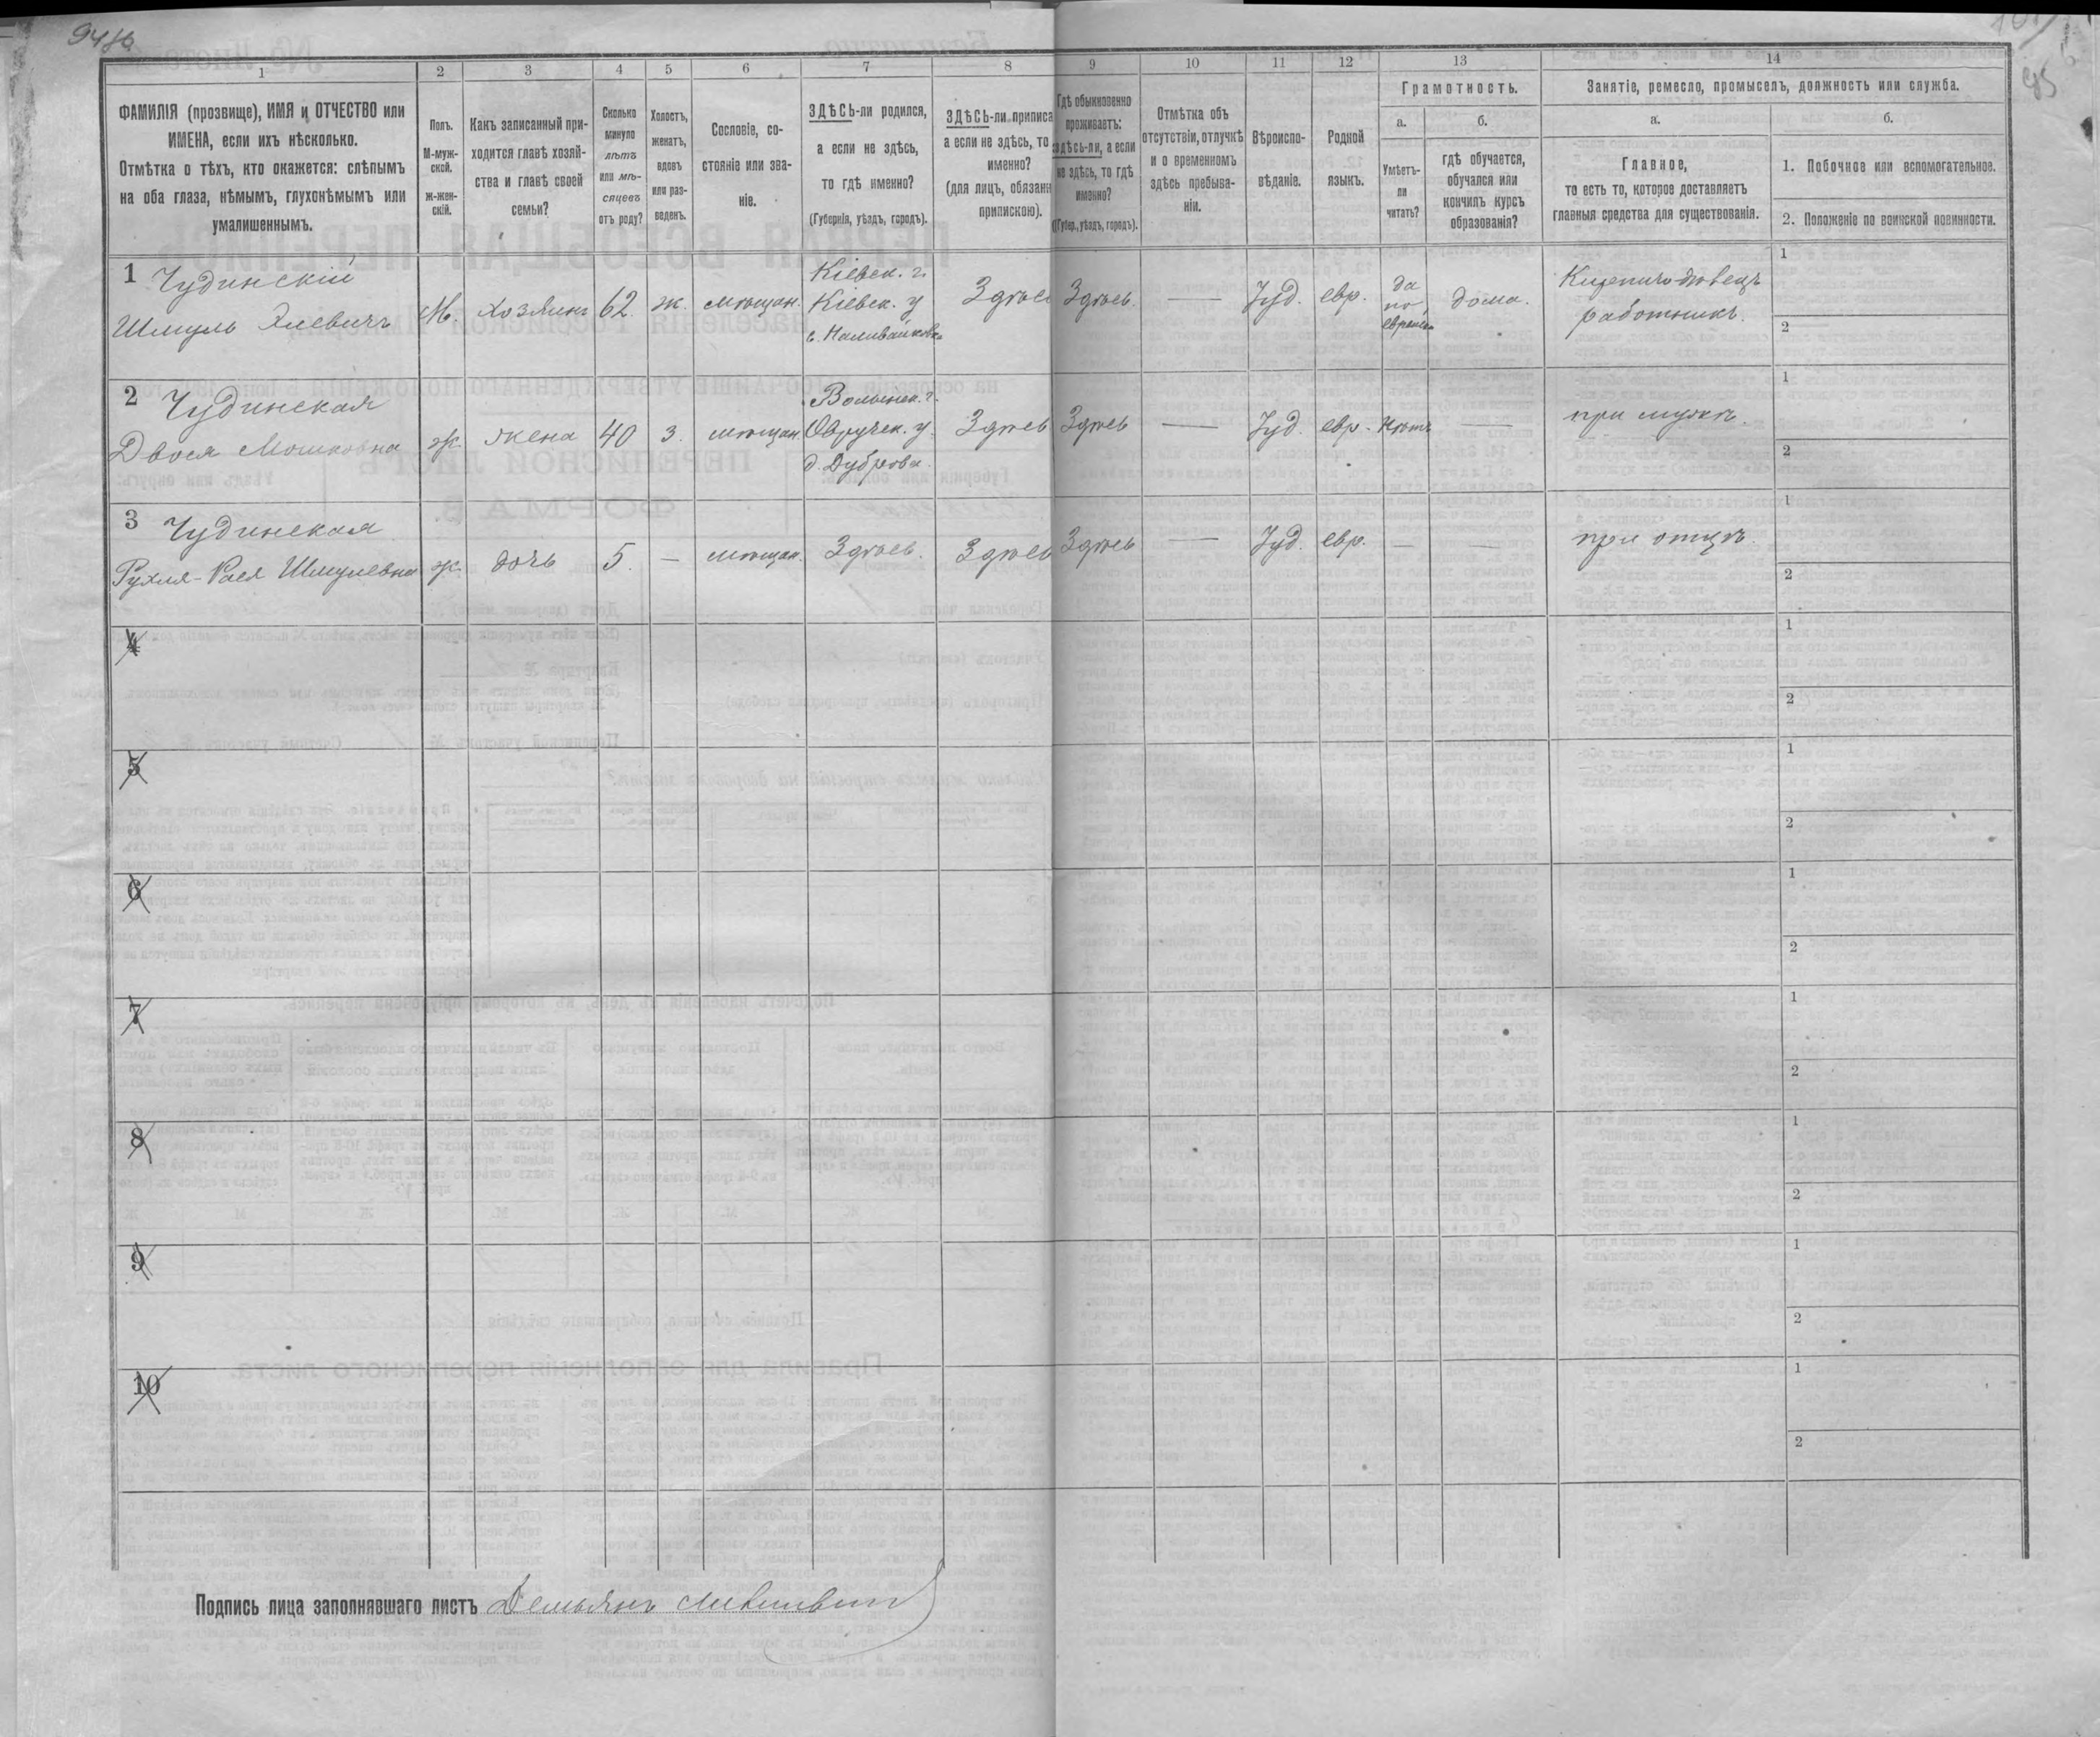 94 об
1 2 3 4 5 6 7 8 9 10 11 12 13 14
95
ФАМИЛІЯ (прозвище), ИМЯ и ОТЧЕСТВО или
ИМЕНА, если ихъ нѣсколько.
Отмѣтка о тѣхъ, кто окажется: слѣпымъ
на оба глаза, нѣмымъ, глухонѣмымъ или
умалишеннымъ.
Полъ.
М-муж-
ской.
ж-жен-
скій.
Какъ записанный при-
ходится главѣ хозяй-
ства и главѣ своей
семьи?
Сколько
минуло
лѣтъ
или мѣ-
сяцевъ
отъ роду?
Холостъ,
женатъ,
вдовъ
или раз-
веденъ.
Сословіе, со-
стояніе или зва-
ніе.
ЗДѢСЬ-ли родился,
а если не здѣсь,
то гдѣ именно?
(Губернія, уѣздъ, городъ).
ЗДѢСЬ-ли приписа
а если не здѣсь, то
именно?
(для лицъ, обязанн
припискою).
Гдѣ обыкновенно
проживаетъ:
здѣсь-ли, а если
не здѣсь, то гдѣ
именно?
(Губер., уѣздъ, городъ).
Отмѣтка объ
отсутствіи, отлучкѣ
и о временномъ
здѣсь пребыва-
ніи.
Вѣроиспо-
вѣданіе.
Родной
языкъ.
Грамотность.
а.
Умѣетъ-
ли
читать?
б.
гдѣ обучается,
обучался или
кончилъ курсъ
образованія?
Занятіе, ремесло, промыселъ, должность или служба.
а.
Главное,
то есть то, которое доставляетъ
главныя средства для существованія.
б.
1. Побочное или вспомогательное.
2. Положеніе по воинской повинности.
1 Чудинскій
Шмуль Элевичъ
М.
хозяинъ
62
ж.
мѣщан.
Кіевск. г.
Кіевск. у
с. Наливайковка
Здѣсь
Здѣсь
—
Іуд.
евр.
да
по
еврейск
дома.
работникъ.
1
2
2 Чудинская
Двося Мошковна
ж.
жена
40
з.
мѣщан.
Волынск. г.
Овручск. у.
д. Дуброва.
Здѣсь
Здѣсь
—
Іуд.
евр.
Нѣтъ
—
при мужѣ.
1
2
3 Чудинская
Рухля-Рася Шмулевна
ж.
дочь
5.
—
мѣщан.
Здѣсь.
Здѣсь
Здѣсь
—
Іуд.
евр.
—
—
при отцѣ.
1
2
4
1
2
5
1
2
6
1
2
7
1
2
8
1
2
9
1
2
10
1
2
Подпись лица заполнявшаго листъ Демьянъ Литвин